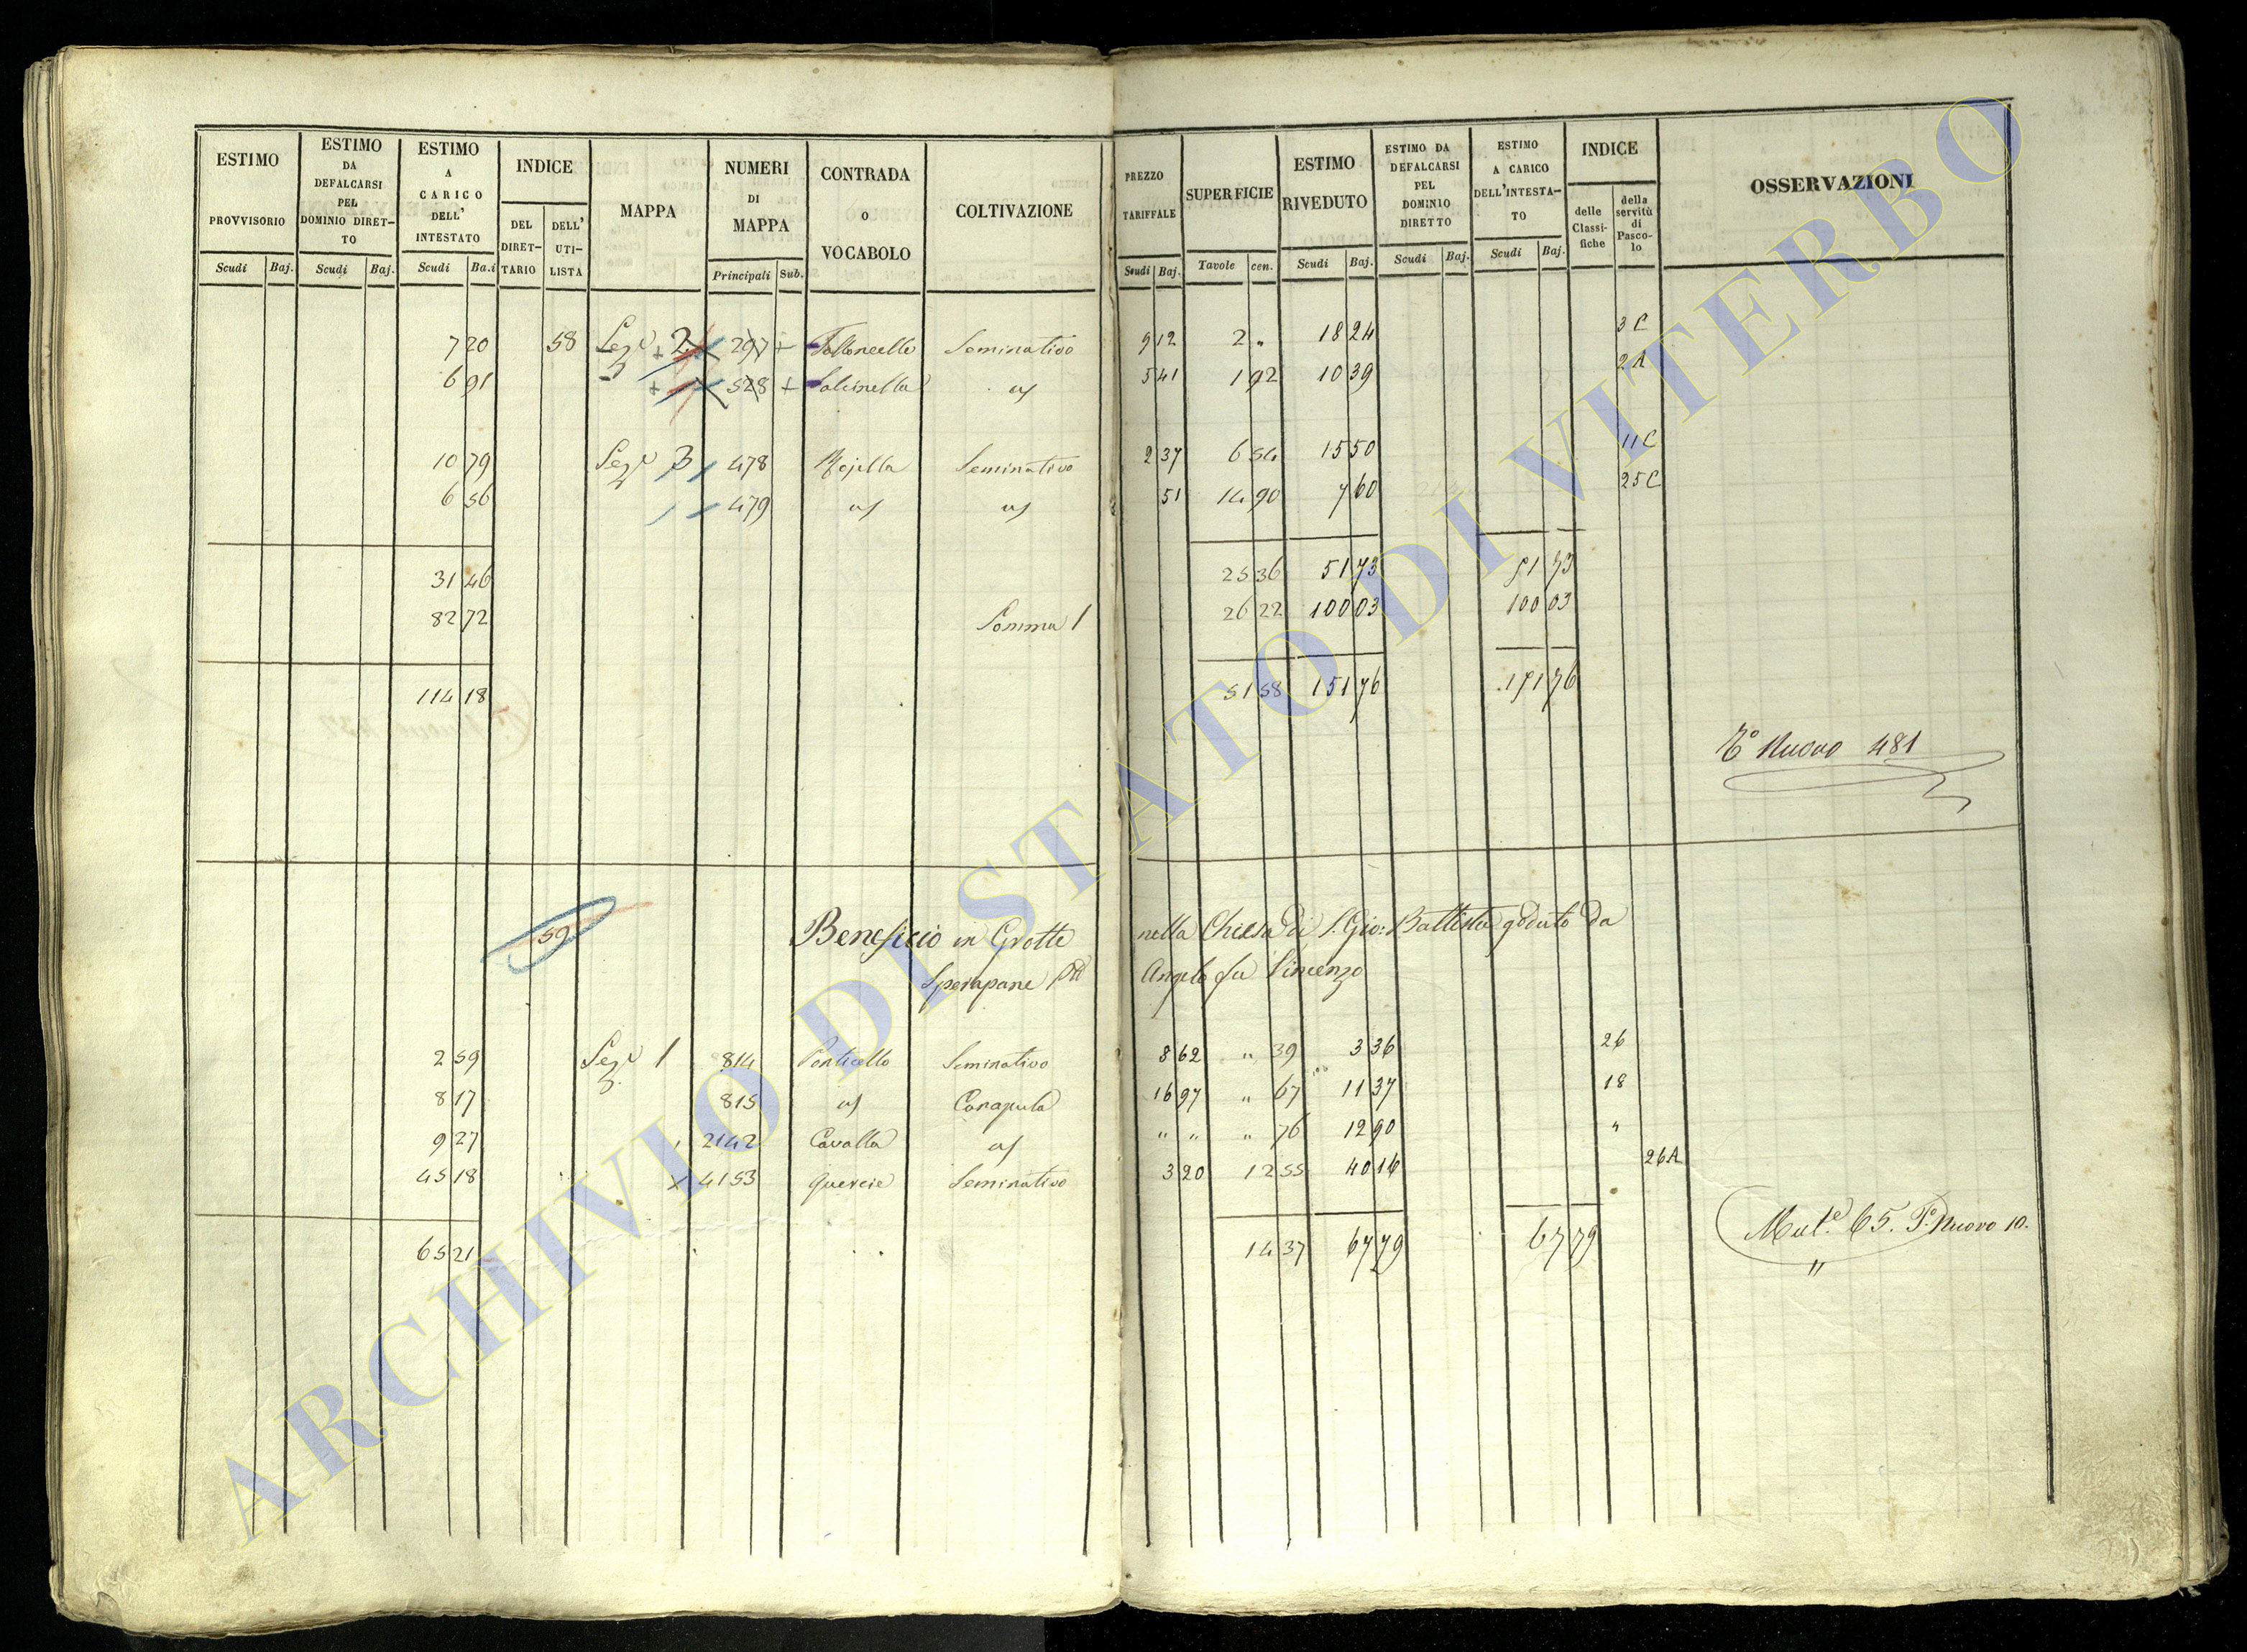 ESTIMO PROVVISORIO Scudi Baj.
ESTIMO DA DEFALCARSI PEL DOMINIO DIRET- TO Scudi Baj.
ESTIMO A CARICO DELL' INTESTATO Scudi Ba.i
INDICE DEL DIRET- TARIO DELL' UTI- LISTA
MAPPA
NUMERI DI MAPPA Principali Sub.
CONTRADA O VOCABOLO
COLTIVAZIONE
PREZZO TARIFFALE Scudi Baj.
SUPERFICIE Tavole cen.
ESTIMO RIVEDUTO Scudi Baj.
ESTIMO DA DEFALCARSI PEL DOMINIO DIRETTO Scudi Baj.
ESTIMO A CARICO DELL'INTESTA- TO Scudi Baj.
INDICE delle Classi- fiche della servitù di Pasco- lo
OSSERVAZIONI
7 20 58 Sez.e 2 297 Seminativo 9 12 2 " 18 24 3 C
6 91 528 Salcinella " 5 41 1 92 10 39 2 A
10 79 Sez.e 3 478 Rojella Seminativo 2 37 6 54 15 50 11 C
6 56 479 " " 51 14 90 7 60 25 C
31 46 25 36 51 73 51 73
82 72 Somma 26 22 100 03 100 03
114 18 51 58 151 76 151 76
Nuovo 481
59 Beneficio in Grotte nella Chiesa di S. Gio: Battista goduto da
Sperapane Angelo fu Vincenzo
2 59 Sez.e 1 814 Ponticello Seminativo 8 62 " 39 3 36 26
8 17 815 " Canapula 16 97 " 67 11 37 18
9 27 2142 Cavalla " " " " 76 12 90 "
45 18 4153 Quercie Seminativo 3 20 12 55 40 16 26 A
65 21 14 37 67 79 67 79
65. P. Nuovo 10.
ARCHIVIO DI STATO DI VITERBO